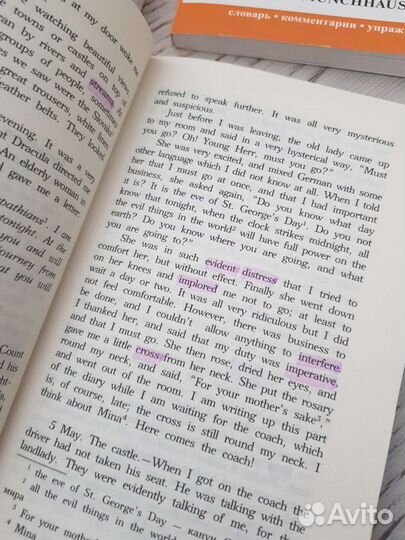 MUNCHHAUS
словарь • комментарии • упраж
at my door
watching beautiful views of
towns or castles on top of
ean by rivers and
groups of people,
streams. At
sometimes
es we saw were the Slovaks
great trousers, white
eather belts. They looked
evening. It was a very
t Dracula directed me
An elderly woman in
gave me a letter.
rpathians! I am
tonight. At the
you and will
journey from
will
Count
refused to speak further. It was all very mysterious
and suspicious.
Just before I was leaving, the old lady came up
to my room and said in a very hysterical way, "Must
you go? Oh! Young Herr, must you go?"
She was very excited, and mixed German with some
other language which I did not know at all. When I told
her that I must go at once, and that I had important
business, she asked again, "Do you know what day
it is? It is the eve of St. George's Day¹. Do you not
know that tonight, when the clock strikes midnight, all
the evil things in the world² will have full power on the
earth? Do you know where you are going, and what
you are going to?"
She was in such evident distress that I tried to
comfort her, but without effect. Finally she went down
on her knees and implored me not to go; at least to
wait a day or two. It was all very ridiculous but I did
not feel comfortable. However, there was business to
be done, and I couldn't allow anything to interfere.
I thanked her, and said that my duty was imperative,
and that I must go. She then rose, dried her eyes, and
gave me a little cross from her neck. She put the rosary
round my neck, and said, "For your mother's sake³"
and went out of the room. I am writing up this part
of the diary while I am waiting for the coach, which
is, of course, late; the cross is still round my neck. I
think about Mina⁴. Here comes the coach!
5 May. The castle.—When I got on the coach the
driver had not taken his seat. He was talking with the
landlady. They were evidently talking of me, for
¹ the eve of St. George's Day — канун
² all the evil things in the world
мира
³ For your mother's
⁴ Mina
Avito